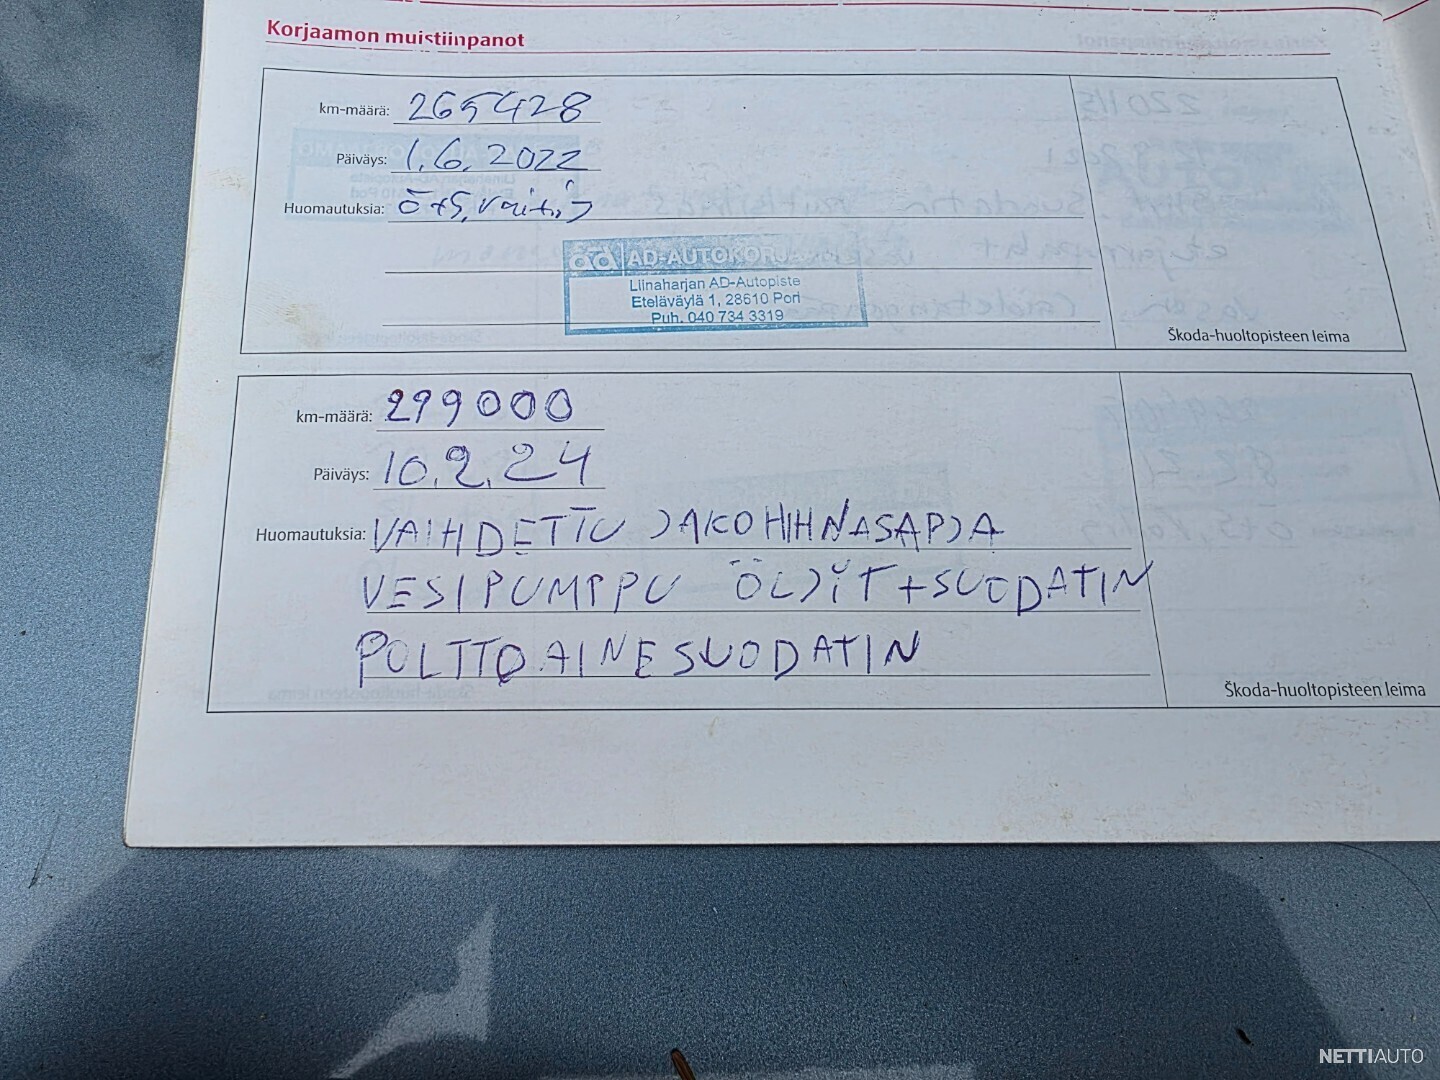 Korjaamon muistiinpanot
km-määrä: 265428
Päiväys: 1.6.2022
Huomautuksia: Ö+S,
ad AD-AUTOKORJ
Liinaharjan AD-Autopiste
Eteläväylä 1, 28610 Pori
Puh. 040 734 3319
Škoda-huoltopisteen leima
km-määrä: 299000
Päiväys: 10.2.24
Huomautuksia: VAIHDETTU JAKOHIHNASARJA
VESIPUMPPU ÖLJYT+SUODATIN
POLTTOAINESUODATIN
Škoda-huoltopisteen leima
NETTIAUTO